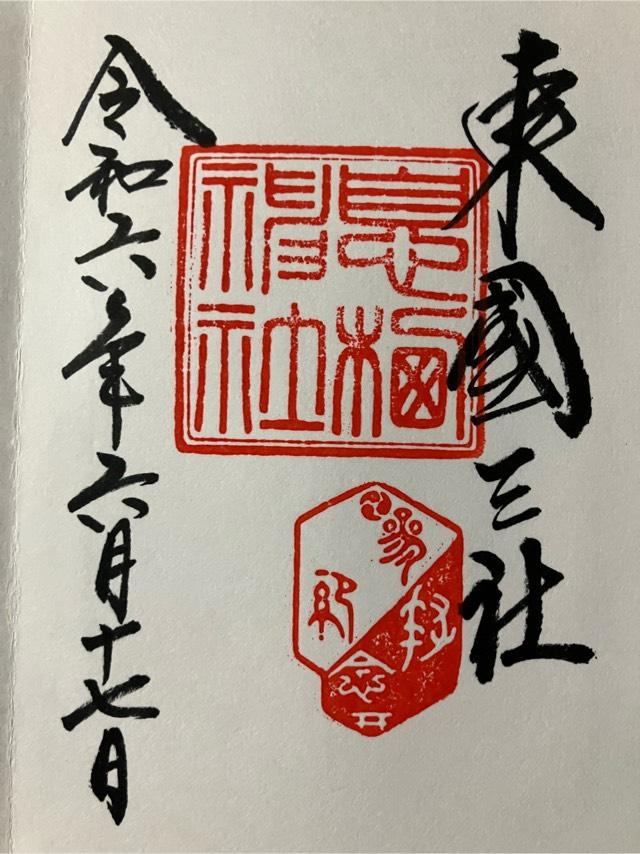 東國三社
息栖
神社
参拝
記念
令和六年六月十七日